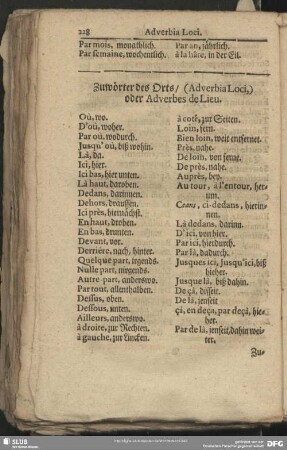 218 Adverbia Loci.
Par mois, monathlich.
Par semaine, wochentlich.
Par an, jährlich.
à la hâte, in der Eil.
Zuwörter des Orts / (Adverbia Loci,)
oder Adverbes de Lieu.
Où, wo.
D'où, woher.
Par où, wodurch.
Jusqu' où, biß wohin.
Là, da.
Ici, hier.
Ici bas, hier unten.
Là haut, daroben.
Dedans, darinnen.
Dehors, draussen.
Ici près, hiernächst.
En haut, droben.
En bas, drunten.
Devant, vor.
Derriére, nach, hinter.
Quelque part, irgends.
Nulle part, nirgends.
Autre-part, anderswo.
Par tout, allenthalben.
Dessus, oben.
Dessous, unten.
Ailleurs, anderswo.
à droite, zur Rechten.
à gauche, zur Lincken.
à coté, zur Seiten.
Loin, fern.
Bien loin, weit entfernet.
Près, nahe.
De loin, von ferne.
De près, nahe.
Auprès, bey.
Au tour, à l'entour, her-
um.
ci-dedans, hierin-
nen.
Là dedans, darinn.
D'ici, von hier.
Par ici, hierdurch.
Par là, dadurch.
Jusques ici, Jusqu'ici, biß
hieher.
Jusque là, biß dahin.
De çà, disseit.
De là, jenseit
çà, en deça, par deçà, hie-
her.
Par de là, jenseit, dahin wei-
ter.
Zu-
SLUB
DFG